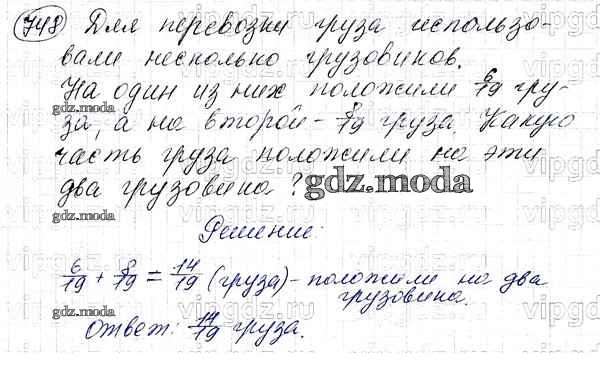 748 Для перевозки груза использо-
вали несколько грузовиков.
На один из них положили 6/19 гру-
за, а на второй - 8/19 груза. Какую
часть груза положили на эти
два грузовика?
Решение:
6/19 + 8/19 = 14/19 (груза) - положили на два
грузовика.
Ответ: 14/19 груза.
gdz.moda
gdz.moda
gdz.moda
gdz.moda
gdz.moda
vipgdz